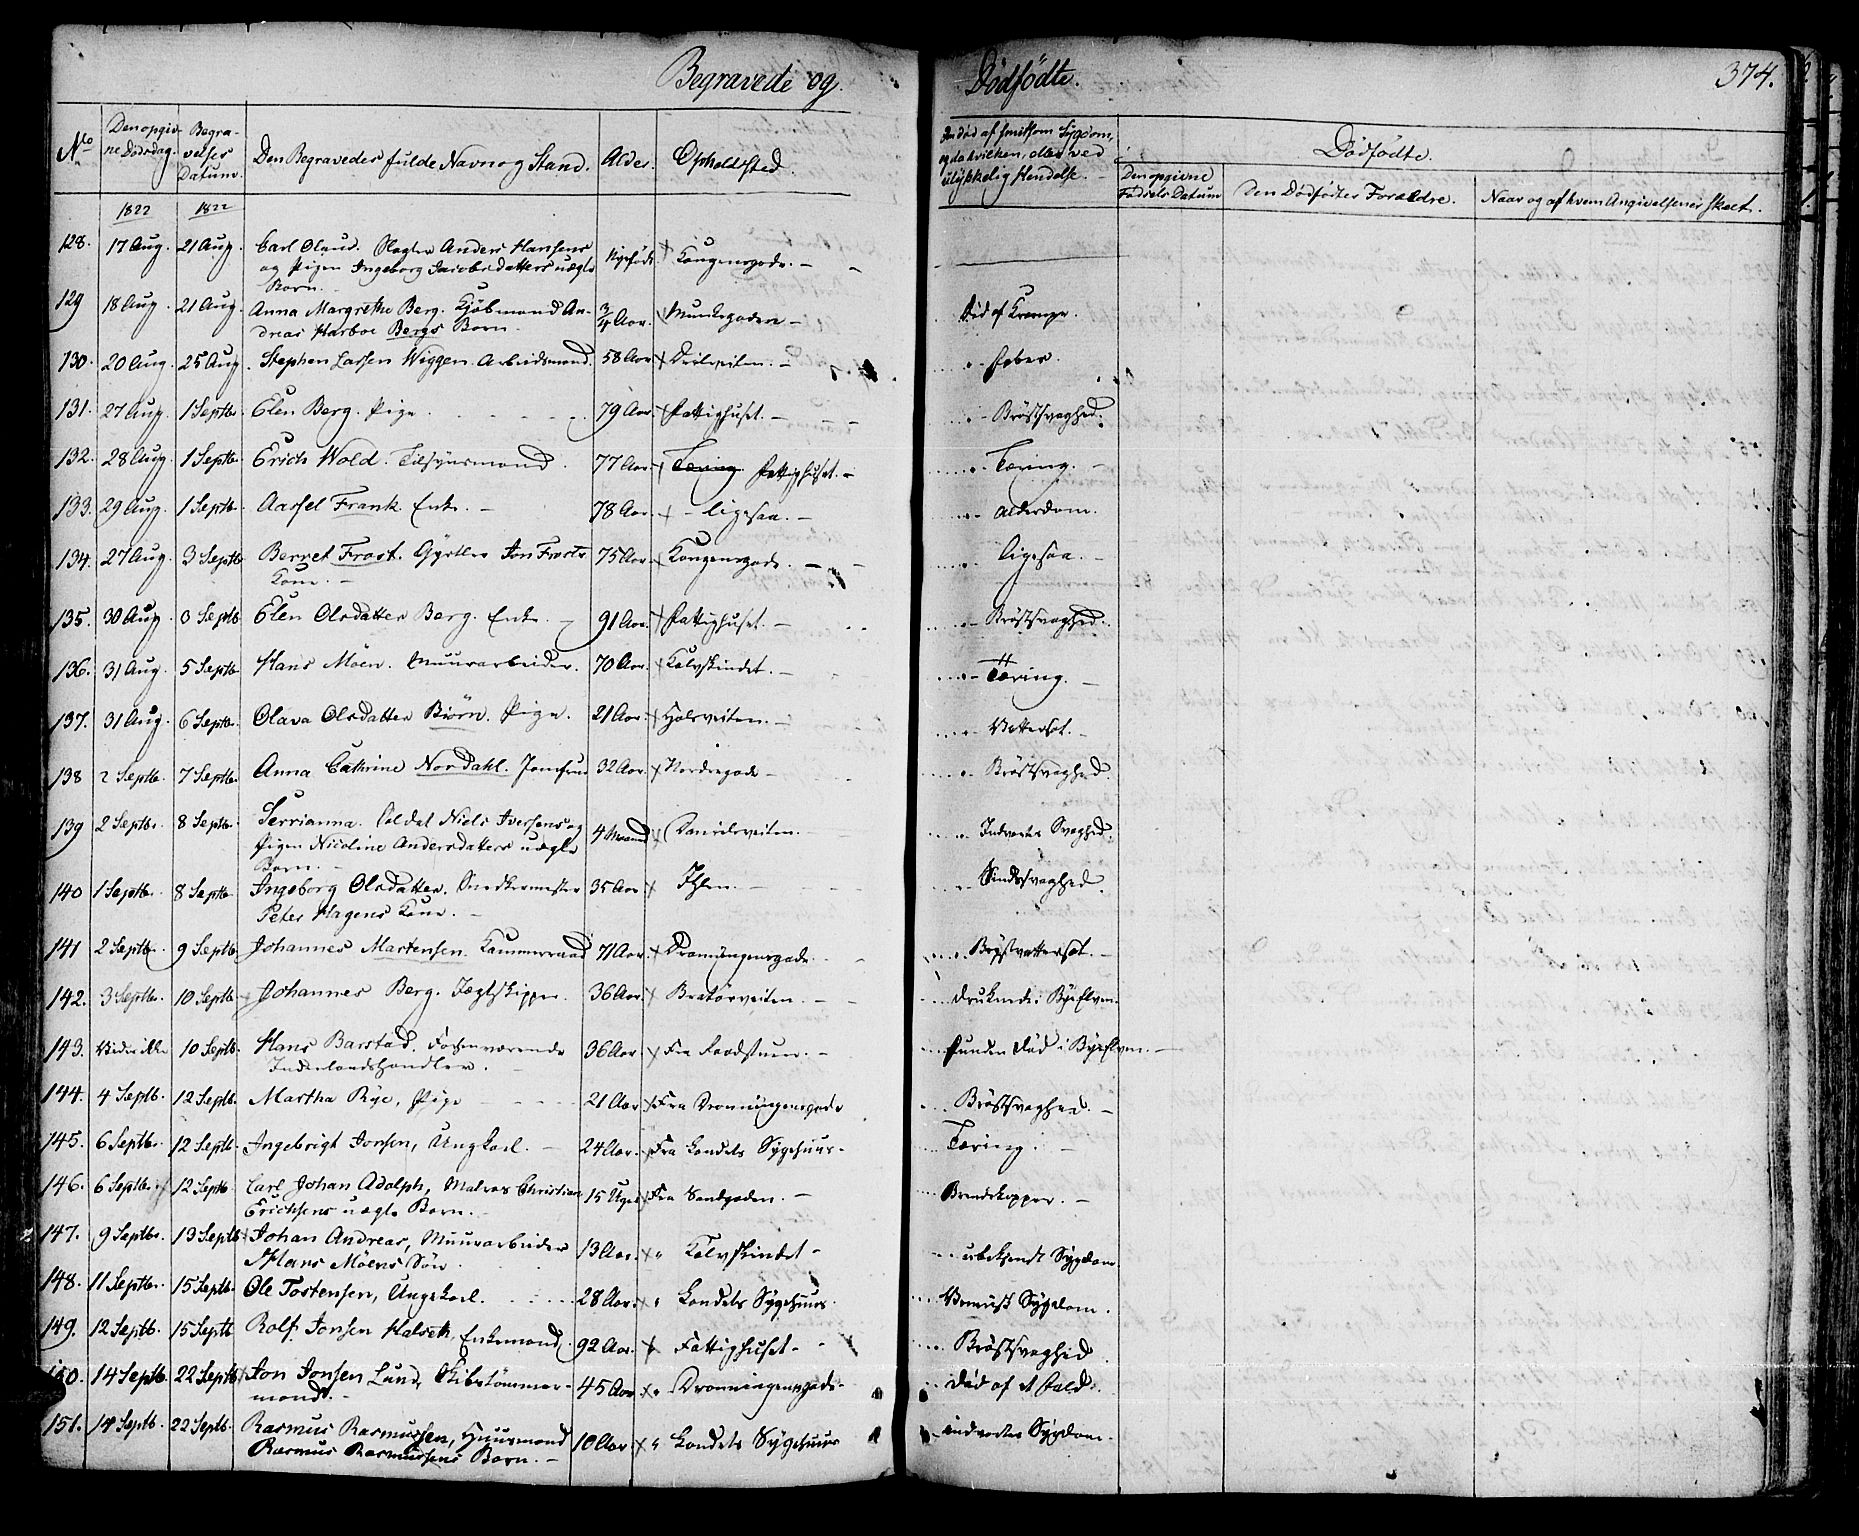 Begravede og Dödfödte. 374.
No Den opgivne Dödsdag. Begravelses Datum. Den Begravedes fulde Navn og Stand. Alder. Opholdsted. Dödfödte.
Den opgivne Födsels Datum Den Dödfödtes Forældre. Naar og af hvem Angivelsen er skeet.
1822 1822
128. 17 Aug. 21 Aug. Carl Olaus. Anders Hansens Nyefödt Kongensgade. -
og Pigen Ingeborg Jacobsdatters uægte
Barn. -
129 18 Aug. 21 Aug. Anna Margrethe Berg. Kjöbmand An- 3/4 Aar. Munkegaden - Död af Krampe.
dreas Harboe Bergs Barn.
130. 20 Aug. 25 Aug. Stephen Larsen Wiggen. Arbeidsmand. 58 Aar - Feber.
131. 27 Aug. 1 Septb. Elen Berg. Pige. 79 Aar. Fattighuset. - - Bröstsvaghed.
132. 28 Aug. 1 Septb. Erich Wold. Tilsynsmand. 77 Aar. Tæring Fattighuset. - - Tæring. -
133. 29 Aug. 1 Septb. Aasel Frank. Enke. - 78 Aar. - ligesaa. - - Alderdom.
134. 27 Aug. 3 Septb. Berret Frost. Gjörtler Jon Frosts 75 Aar. Kongensgade. - ligesaa. -
Kone. -
135. 30 Aug. 3 Septb. Elen Olsdatter Berg. Enke. - 91 Aar. Fattighuset. - - Bröstsvaghed.
136. 31 Aug. 5 Septb. Hans Möen. Muurarbeider. 70 Aar. Kalvskindet. - - Tæring. -
137. 31 Aug. 6 Septb. Olava Olsdatter Biörn. Pige. 21 Aar. Hjelsveiten. - - Vattersot. -
138 2 Septb. 7 Septb. Anna Cathrine Nordahl. Jomfrue 32 Aar. Nordregade - - Bröstsvaghed.
139 2 Septb. 8 Septb. Serrianna. Soldat Niels Iversens og 4 Maaned Danielsveiten. - Indvortes Svaghed.
Pigen Nicoline Andersdatters uægte
Barn. -
140 1 Septb. 8 Septb Ingeborg Olsdatter. Snedkermester 35 Aar Ihlen. - - Sindssvaghed.
Peter Hagens Kone. -
141 2 Septb. 9 Septb. Johannes Martensen. Kammerraad 71 Aar. Dronningensgade. - Brystvattersot. -
142. 3 Septb. 10 Septb. Johannes Berg. Jægtskipper. 36 Aar Bratörveiten. - - druknede i Byeelven.
143. Vides ikke 10 Septb. Hans Barstad. Forhenværende 36 Aar Fra Baadstuen. - funden död i Byeelven. -
Indenlandshandler.
144. 4 Septb. 12 Septb. Martha Rye, Pige 21 Aar Fra Dronningensgade Bröstsvaghed. -
145. 6 Septb. 12 Septb. Ingebrigt Jonsen, Ungkarl. - 24 Aar. Fra Landets Sygehuus - Tæring. -
146. 6 Septb. 12 Septb. Carl Johan Adolph, Matros Christian 15 Uger Fra Sandgaden. - Börnekopper. -
Erichsens uægte Barn. -
147. 9 Septb. 13 Septb Johan Andreas, Muurarbeider 13 Aar. Kalvskindet - ubekjendt Sygdom.
Hans Möens Sön
148. 11 Septb. 15 Septb. Ole Tostensen, Ungekarl. 28 Aar. Landets Sygehuus. Venerisk Sygdom.
149. 12 Septb. 15 Septb Rolf Jonsen Halseth, Enkemand. 92 Aar. Fattighuset - Bröstsvaghed.
150. 14 Septb. 22 Septb. Jon Jonsen Lund, Skibstömmer- 45 Aar Dronningensgade. död af et Fald.
mand. -
151. 14 Septb. 22 Septb. Rasmus Rasmussen, Huusmand 10 Aar. Landets Sygehuus - indvortes Sygdom.
Rasmus Rasmussens Barn. -